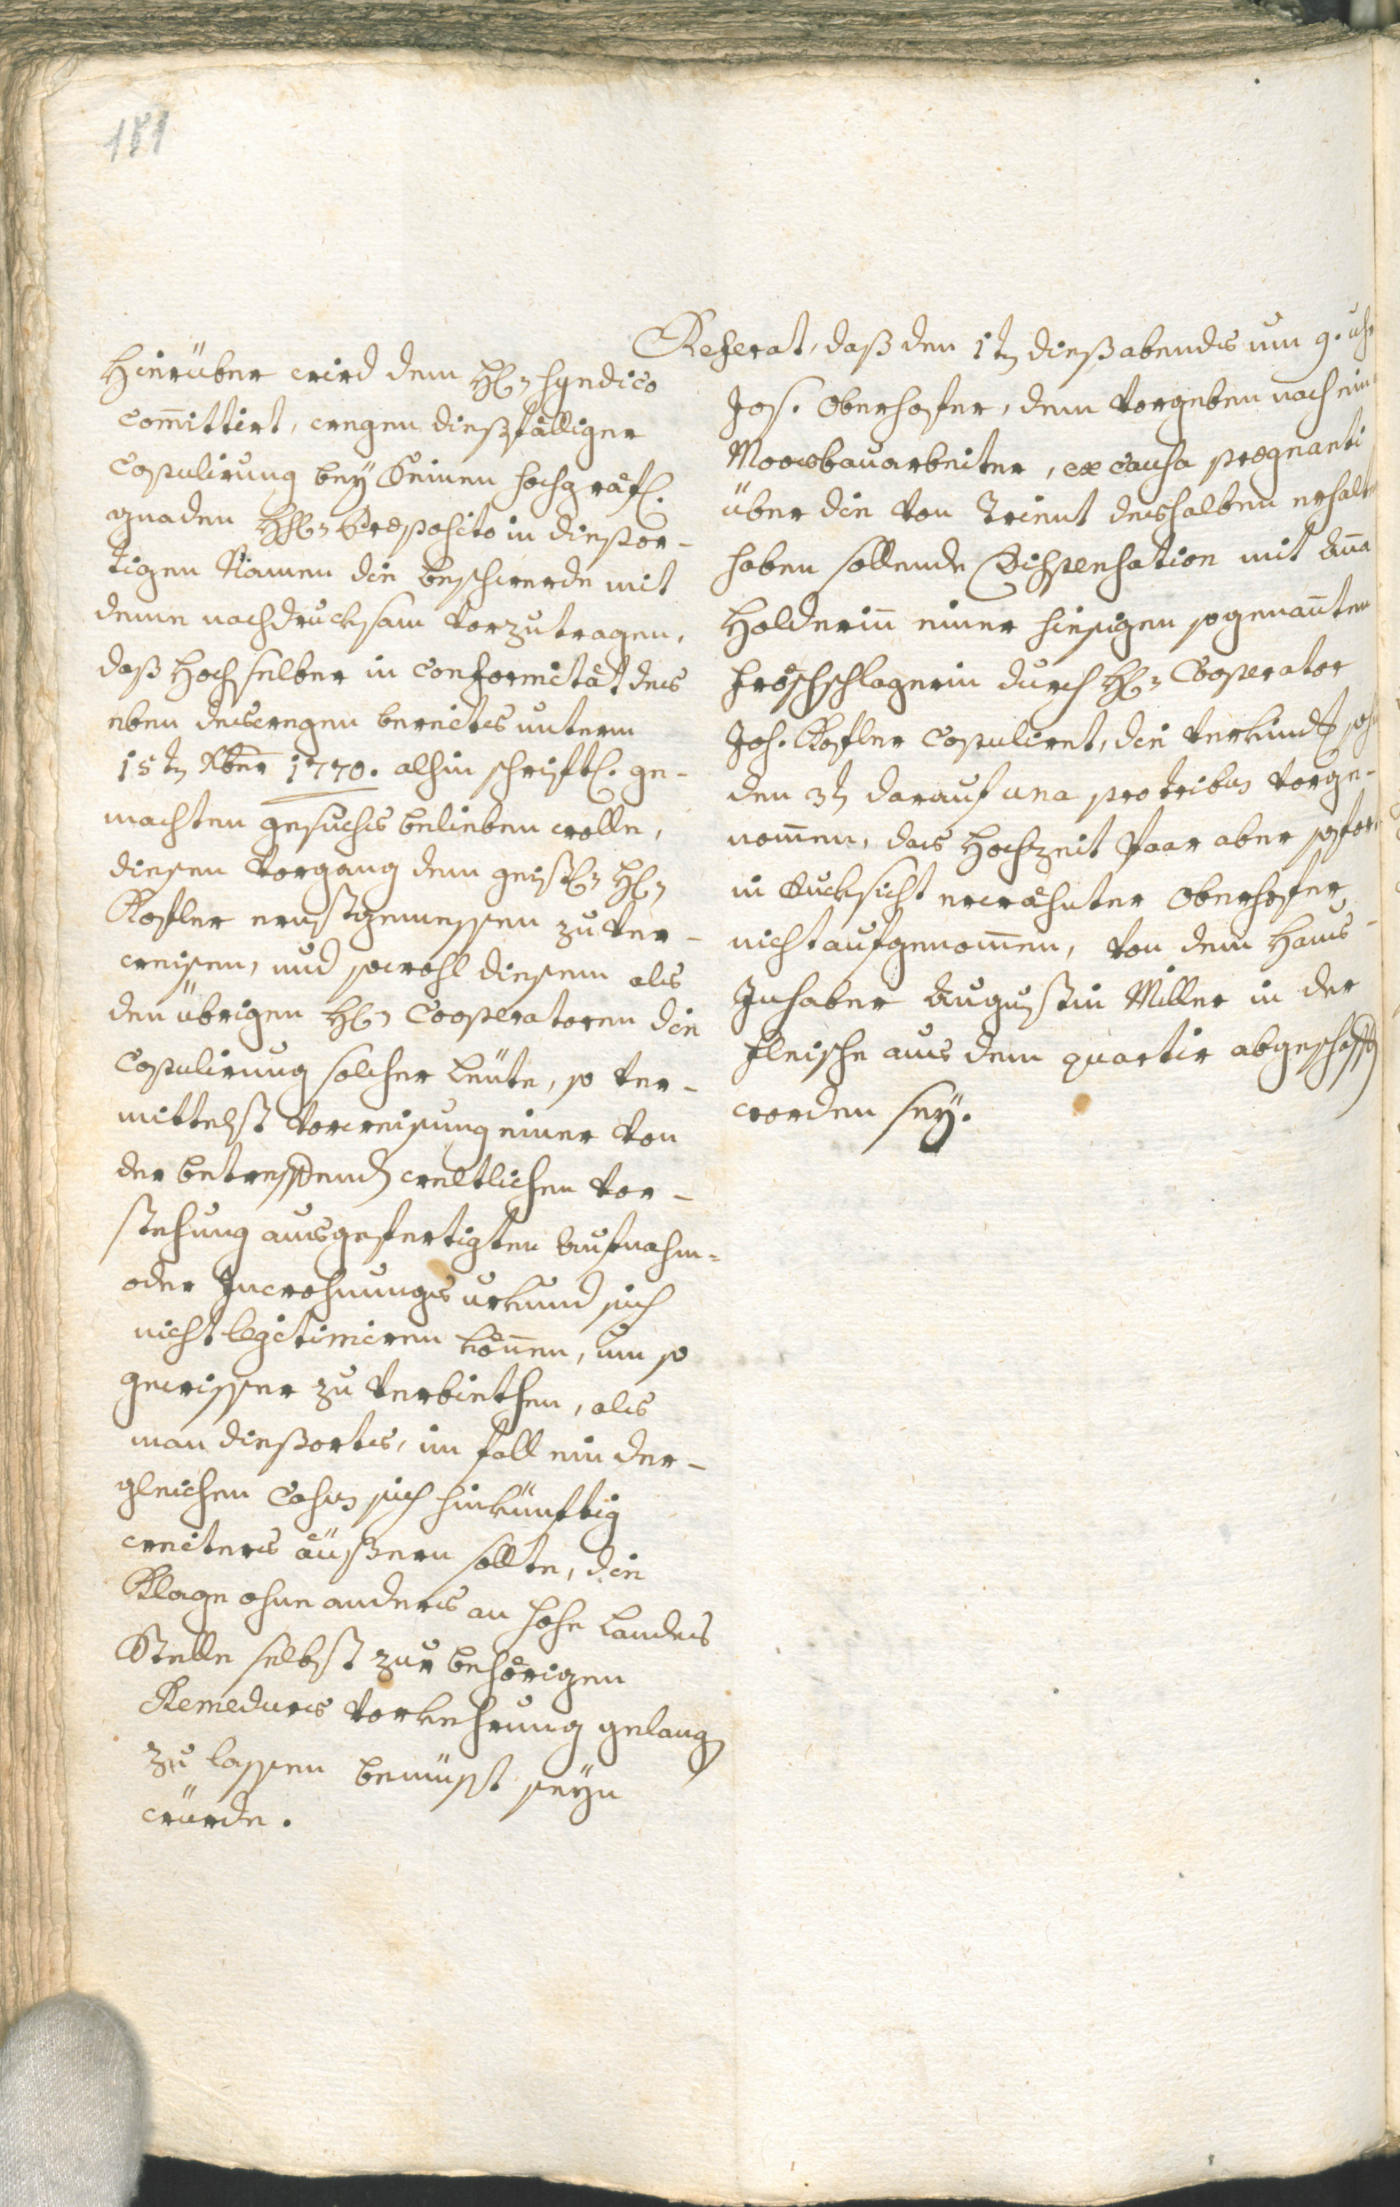 181
Hierüber wird dem H: Syndico
committirt, wegen dießfälliger
Copulirung bey Seiner hochgräfl.
gnaden H: Præposito in dießor-
tigen Namen die beschwerde mit
deme nachdrucksam vorzutragen,
daß Hochselber in Conformitåt des
eben deswegen bereits unterm
15t Xber 1770. alhin schriftl. ge-
machten gesuchs belieben wolle,
diesen Vorgang dem geistl: H:
Kofler ernstgemessen zu ver-
weisen, und sowohl diesem als
den übrigen H: Cooperatoren die
Copulirung solcher Leüte, so ver-
mittelst Vorweisung einer von
der betreffend weltlichen Vor-
stehung ausgefertigten Aufnahm-
oder Inwohnungs urkund sich
nicht legitimiren können, um so
gewisser zu verbiethen, als
man dießorts, im fall ein der-
gleichen Casus sich hinkünftig
weiters äußern sollte, die
Klage ohne anders an hohe Landes
Stelle selbst zur behörigen
Remedurs Vorkehrung gelang
zu lassen bemüsst seyn
würde.
Referat, daß den 1t dieß abends um 9. uhr
Jos. Oberhofer, dem Vorgeben nach ein
Moosbauarbeiter, ex causa prægnanti
über die von Trient deshalben erhalt
haben sollende Dispensation mit Aña
Holderiñ einer hiesigen sogenañten
fröschschlagerin durch H: Cooperator
Joh. Kofler Copulirt, die Verkünd
den 3t darauf una pro tribus vorge-
nom̃en, das Hochzeit Paar aber
in Rucksicht erwähnter Oberhofer
nicht aufgenom̃en, von dem Haus-
Inhaber Augustin Miller in der
fleische aus dem quartir abgeschafft
worden sey.